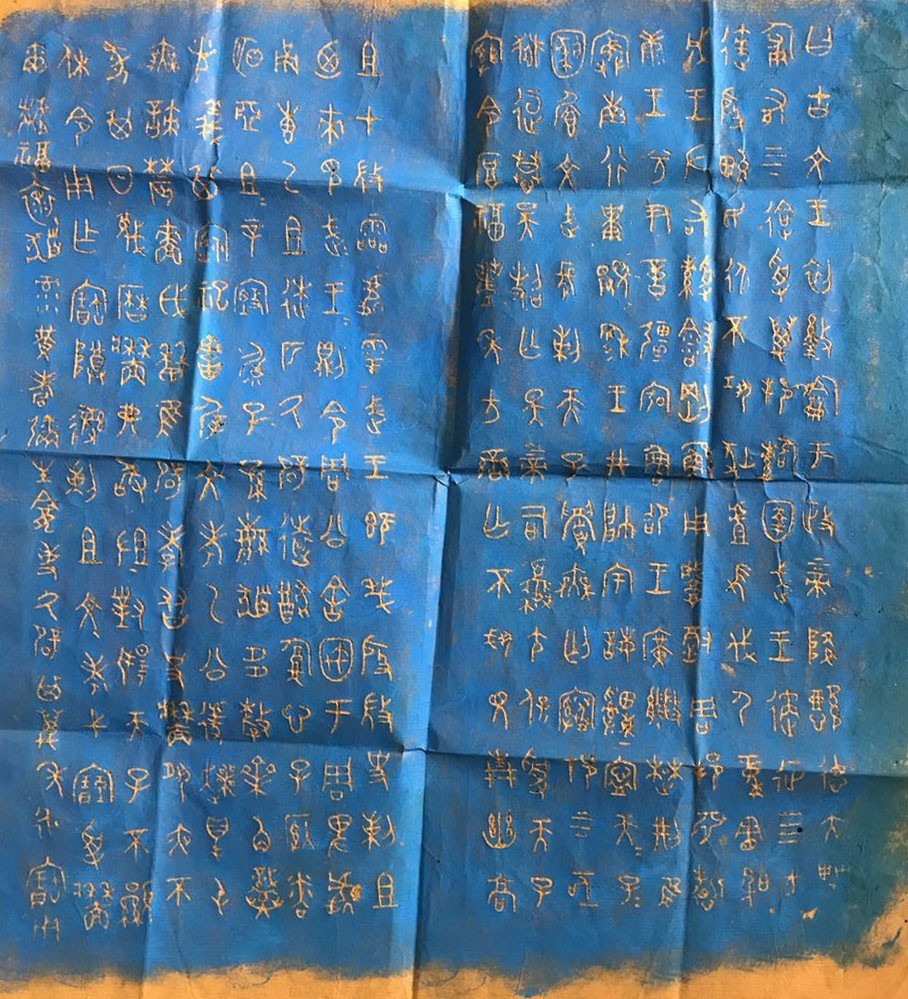 曰古文王初𢿥龢于政上帝降懿德大甹
匍有上下迨受萬邦𩁹圉武王遹征四方
達殷畯民永不巩狄虘𢼸伐尸童憲聖
成王左右綬會剛鯀用肇徹周邦淵哲
康王兮尹億疆宖魯卲王廣能楚荊隹
寏南行祗景穆王井帥宇誨申寧天子
天子圉饡文武長剌天子眉無匄𩰬祁上下
亟獄逗慕昊照亡斁上帝司夔尢保受天子
綰令厚福豐年方蠻亡不𢦚見青幽高
且才微霝處𩁹武王既𢦏殷微史剌且
迺來見武王武王則令周公舍㝢于周卑處
甬叀乙且逨匹氒辟遠猷腹心子納
粦明亞且且辛䢦毓子孫繁祓多釐齊角熾
光義其禋祀害屖文考乙公遽爽
得屯無諫農嗇戉曆隹辟孝友史墻
夙夜不墜其日蔑曆墻弗敢沮對揚天子不顯
休令用乍寶尊彝剌且文考弋𡩜受墻
爾黻福懷祓彔黃耇彌生龕事氒辟其萬年永寶用